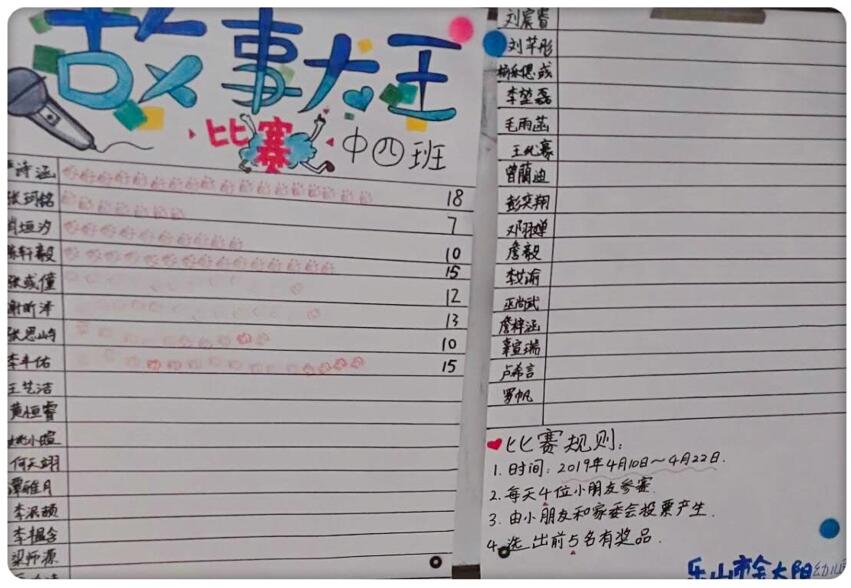 故事大王
比赛 中四班
诗涵 18
张珂铭 7
垣汐 10
轩毅 15
张或僮 12
谢昕泽 13
张恩屿 10
李丰佑 15
王艺洁
黄恒睿
姚小暄
何天翊
谭雅月
李
李楒含
梁所源
刘宸睿
刘芊彤
李堃磊
毛雨菡
王化骞
曾蘭迪
彭奕翔
邓羽婵
詹毅
李汶渝
巫尚武
詹梓涵
辜宣瑞
卢希言
罗帆
比赛规则:
1. 时间: 2019年4月10日～4月22日.
2. 每天4位小朋友参赛.
3. 由小朋友和家委会投票产生.
4. 选出前5名有奖品.
乐山市金太阳幼儿